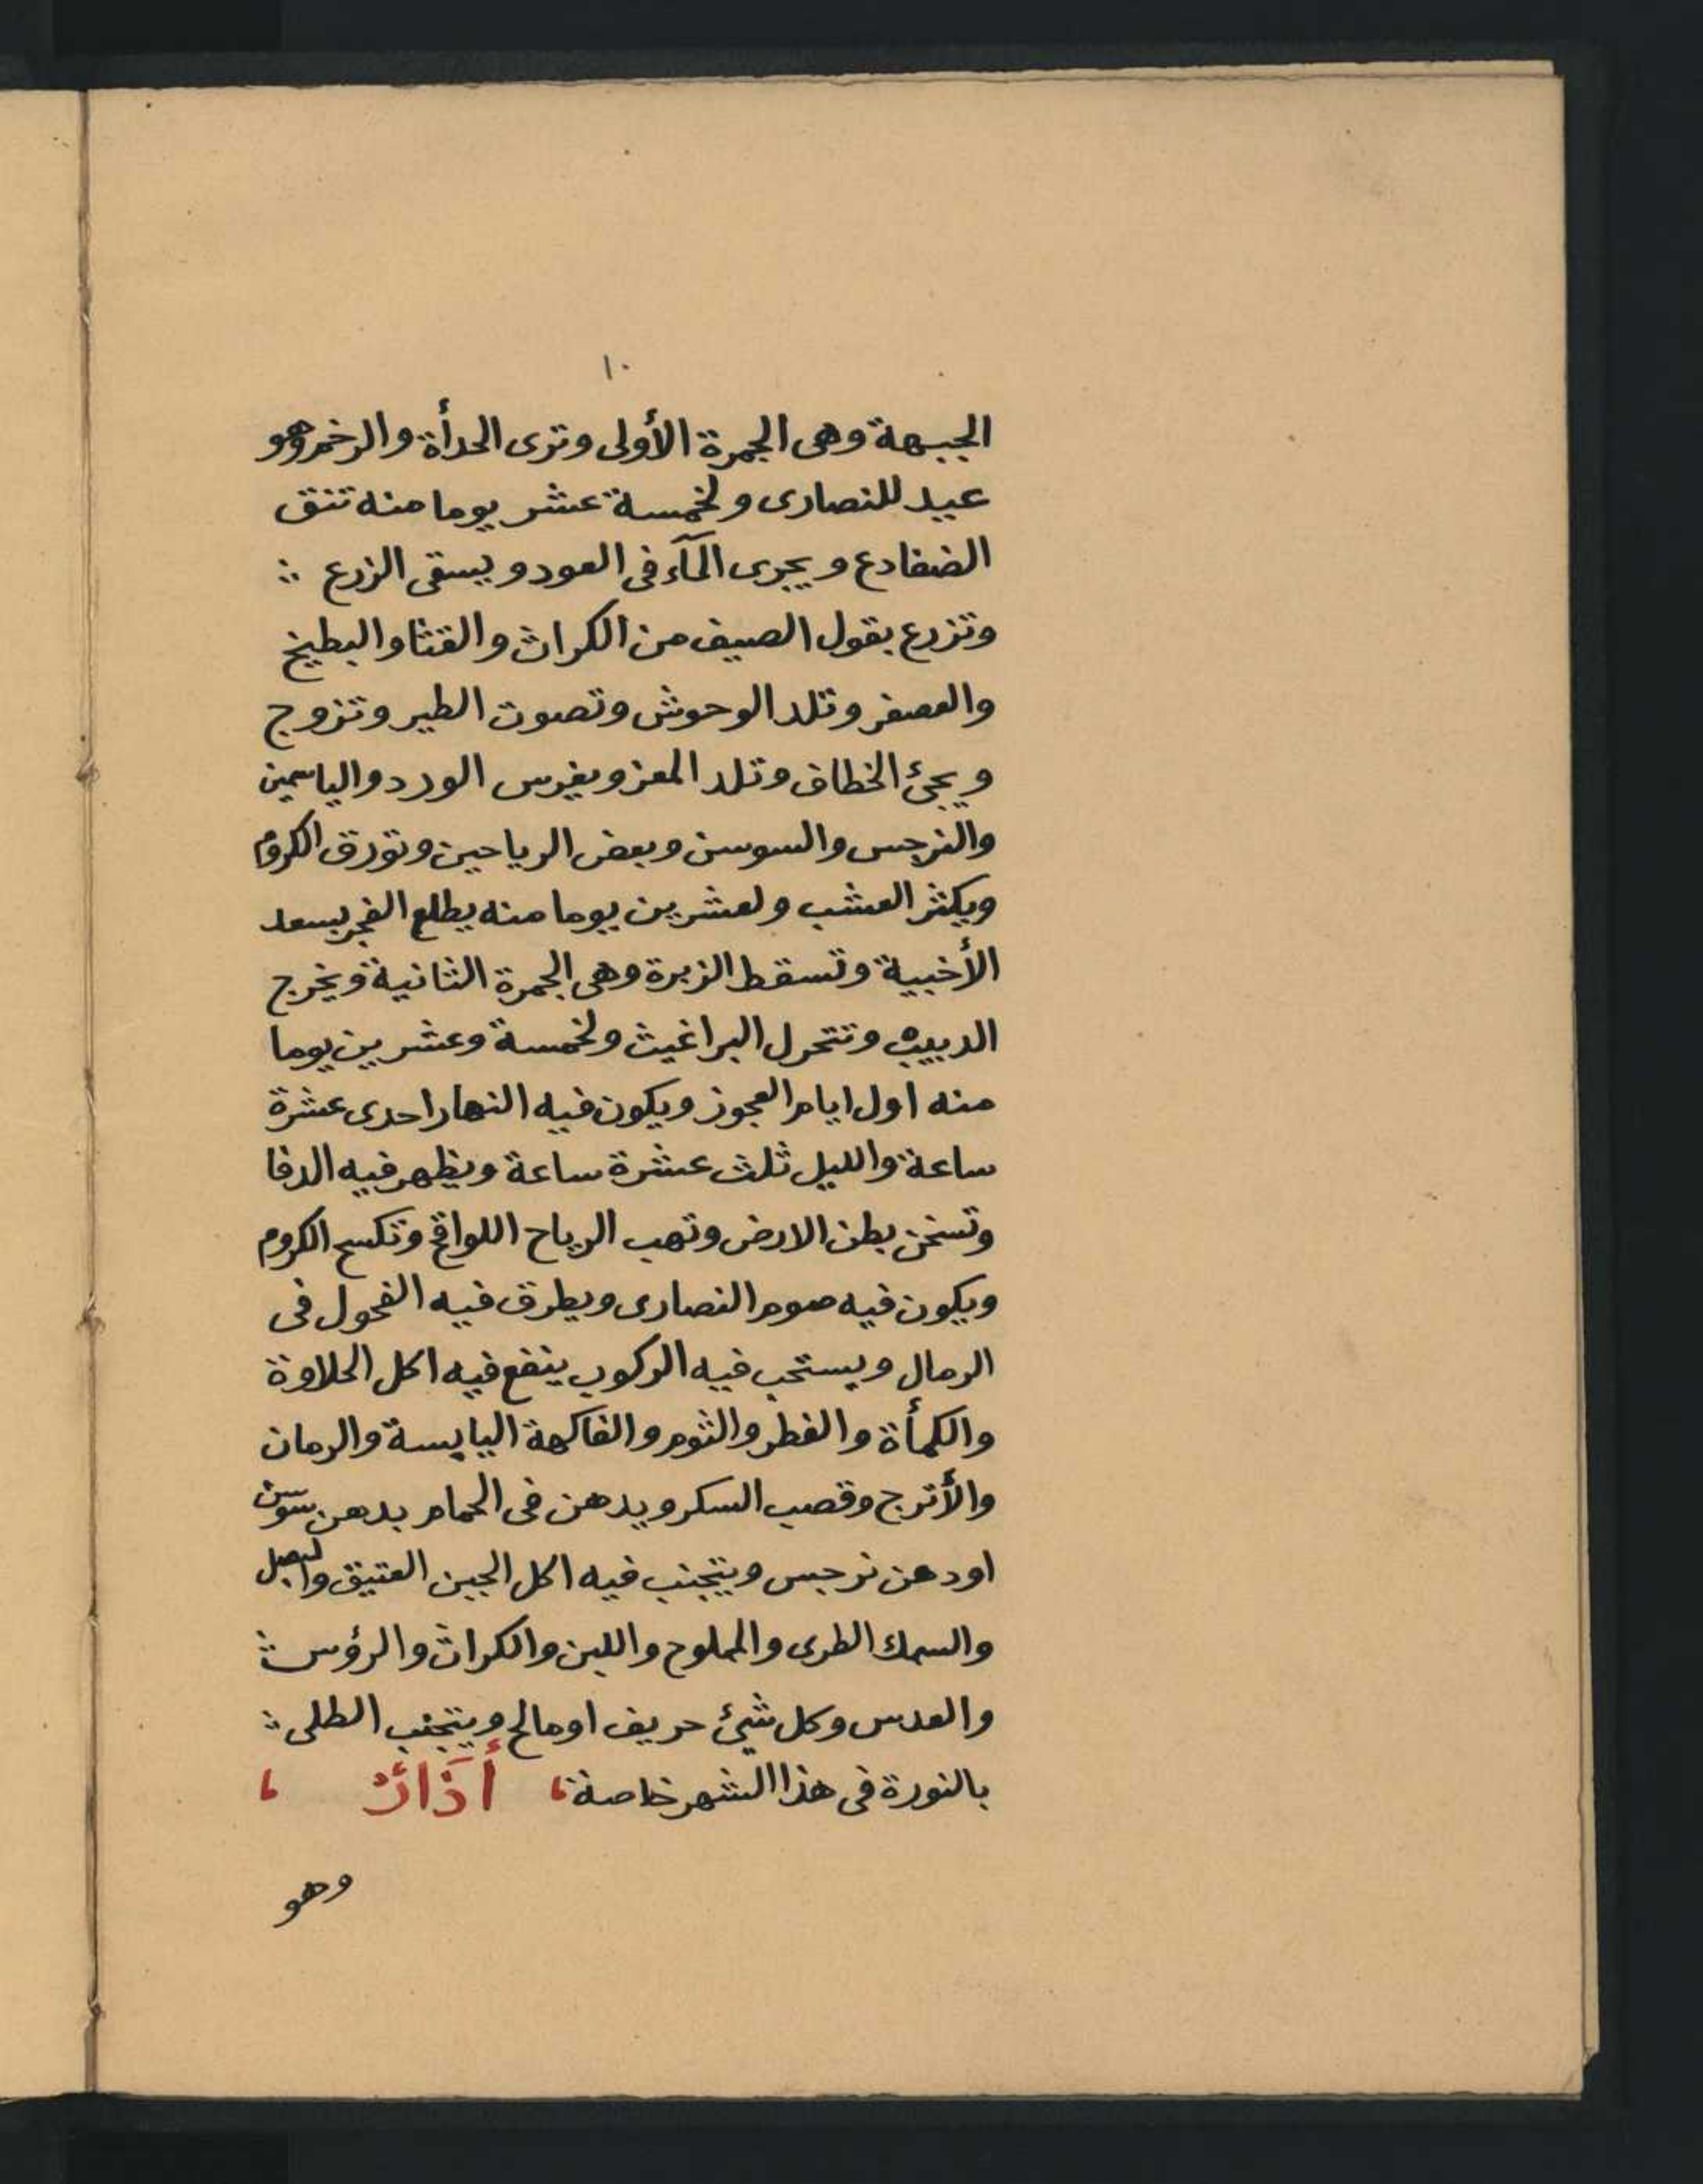 ١٠
الجبهة وهى الجمرة الأولى وترى الحدأة والرخم وهو
عيد للنصارى ولخمسة عشر يوما منه تنق
الضفادع ويجرى المآء فى العود ويسقى الزرع ∴
وتزرع بقول الصيف من الكراث والقثا والبطيخ
والعصفر وتلد الوحوش وتصوت الطير وتزوج
ويجئ الخطاف وتلد المعز ويغرس الورد والياسمين
والنرجس والسوسن وبعض الرياحين وتورق الكروم
ويكثر العشب ولعشرين يوما منه يطلع الفجر بسعد
الأخبية وتسقط الزبرة وهى الجمرة الثانية ويخرج
الدبيب وتتحرك البراغيث ولخمسة وعشرين يوما
منه اول ايام العجوز ويكون فيه النهار احدى عشرة
ساعة والليل ثلث عشرة ساعة ويظهر فيه الدفا
وتسخن بطن الارض وتهب الرياح اللواقح وتكسح الكروم
ويكون فيه صوم النصارى ويطرق فيه الفحول فى
الرمال ويستحب فيه الركوب ينفع فيه اكل الحلاوة
والكمأة والفطر والثوم والفاكهة اليابسة والرمان
والأترج وقصب السكر ويدهن فى الحمام بدهن سوسن
اودهن نرجس ويتجنب فيه اكل الجبن العتيق والبصل
والسمك الطرى والمملوح واللبن والكراث والرؤس ∴
والعدس وكل شيئ حريف اومالح ويتجنب الطلى ∴
بالنورة فى هذا الشهر خاصة، أَذَارُ ،
وهو